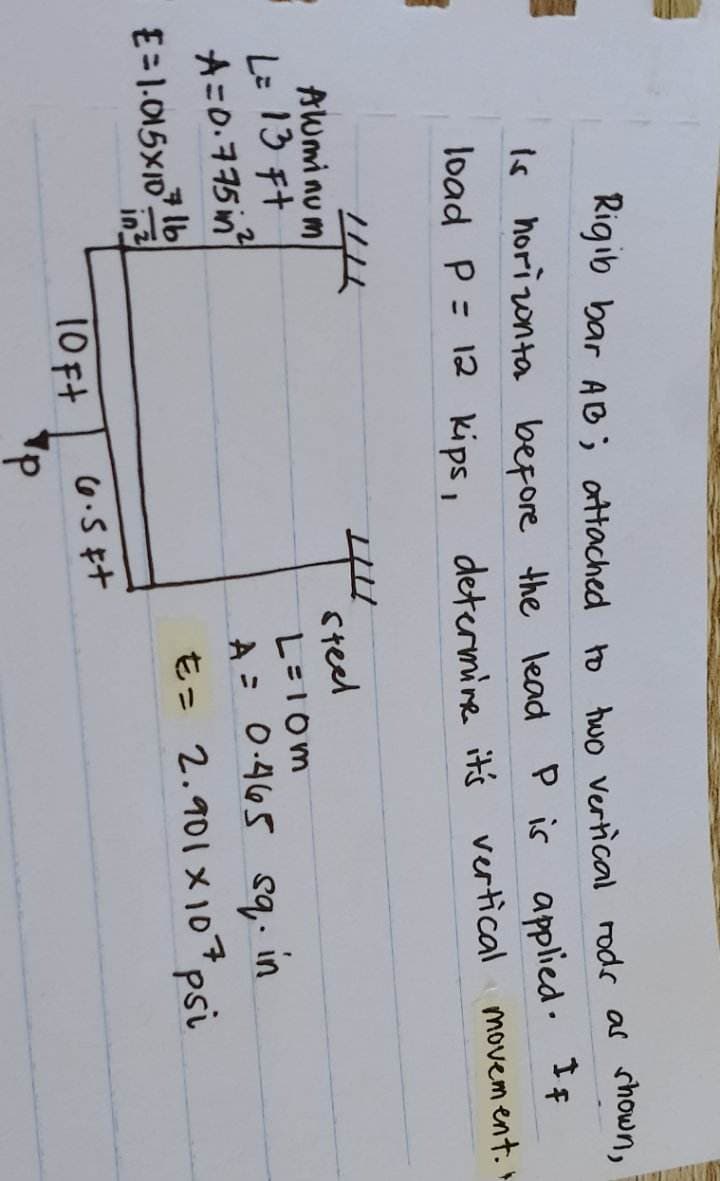 Rigib bar AB; attached to two vertical rods as shown,
is horizonta before the lead P is applied. If
load P = 12 kips, determine it's vertical movement.
Aluminum
L = 13 ft
A = 0.775 in²
E = 1.015×10⁷ lb/in²
steel
L = 10 m
A = 0.465 sq. in
E = 2.901 × 10⁷ psi
10 ft
6.5 ft
P